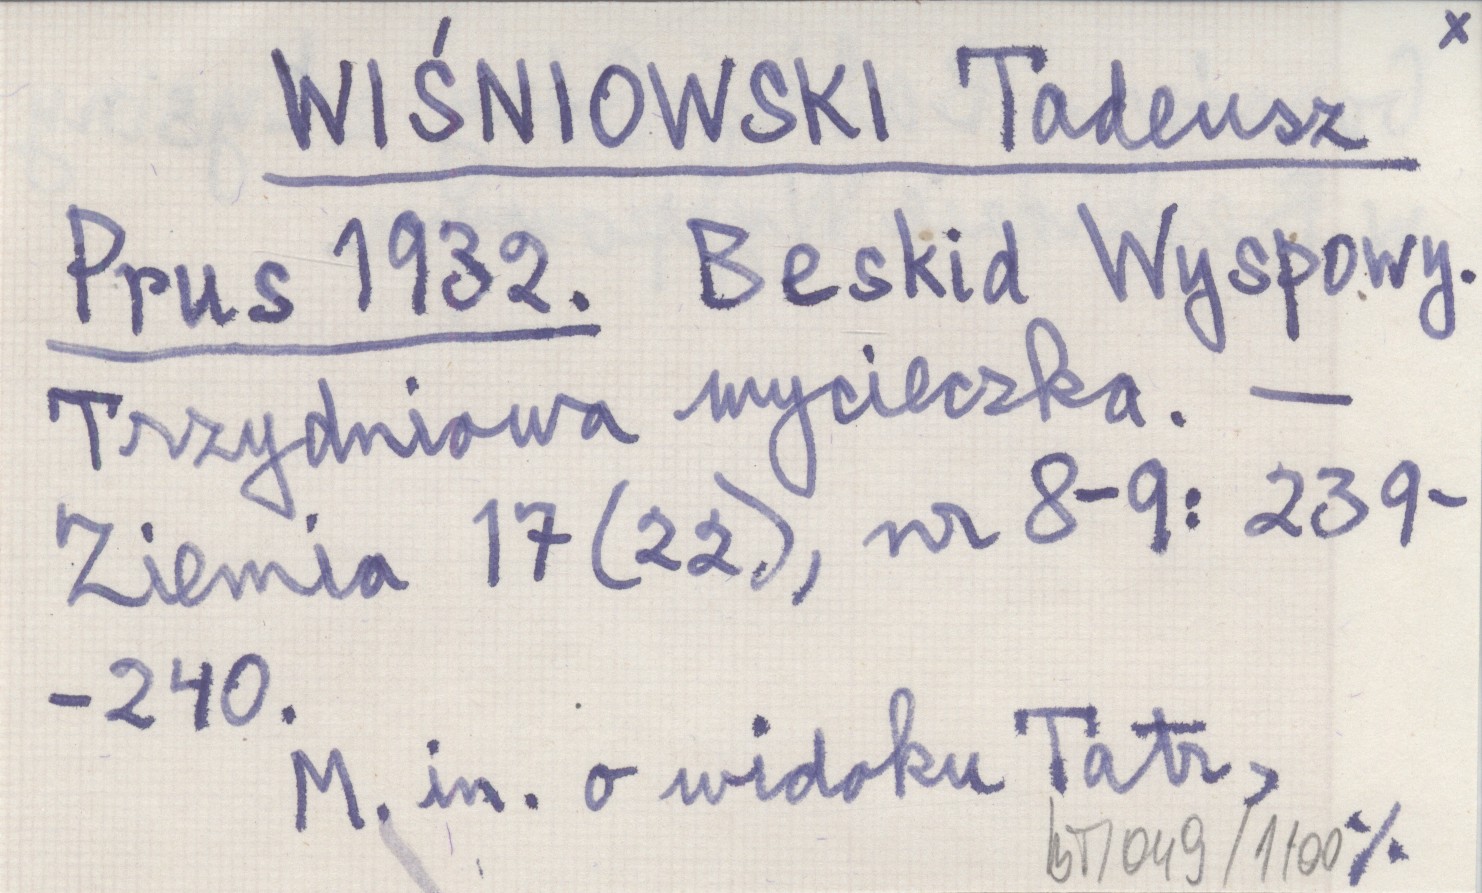 x
WIŚNIOWSKI Tadeusz
Prus 1932. Beskid Wyspowy.
Trzydniowa wycieczka. —
Ziemia 17 (22), nr 8-9: 239-
-240.
M. in. o widoku Tatr,
049/1100 ./.